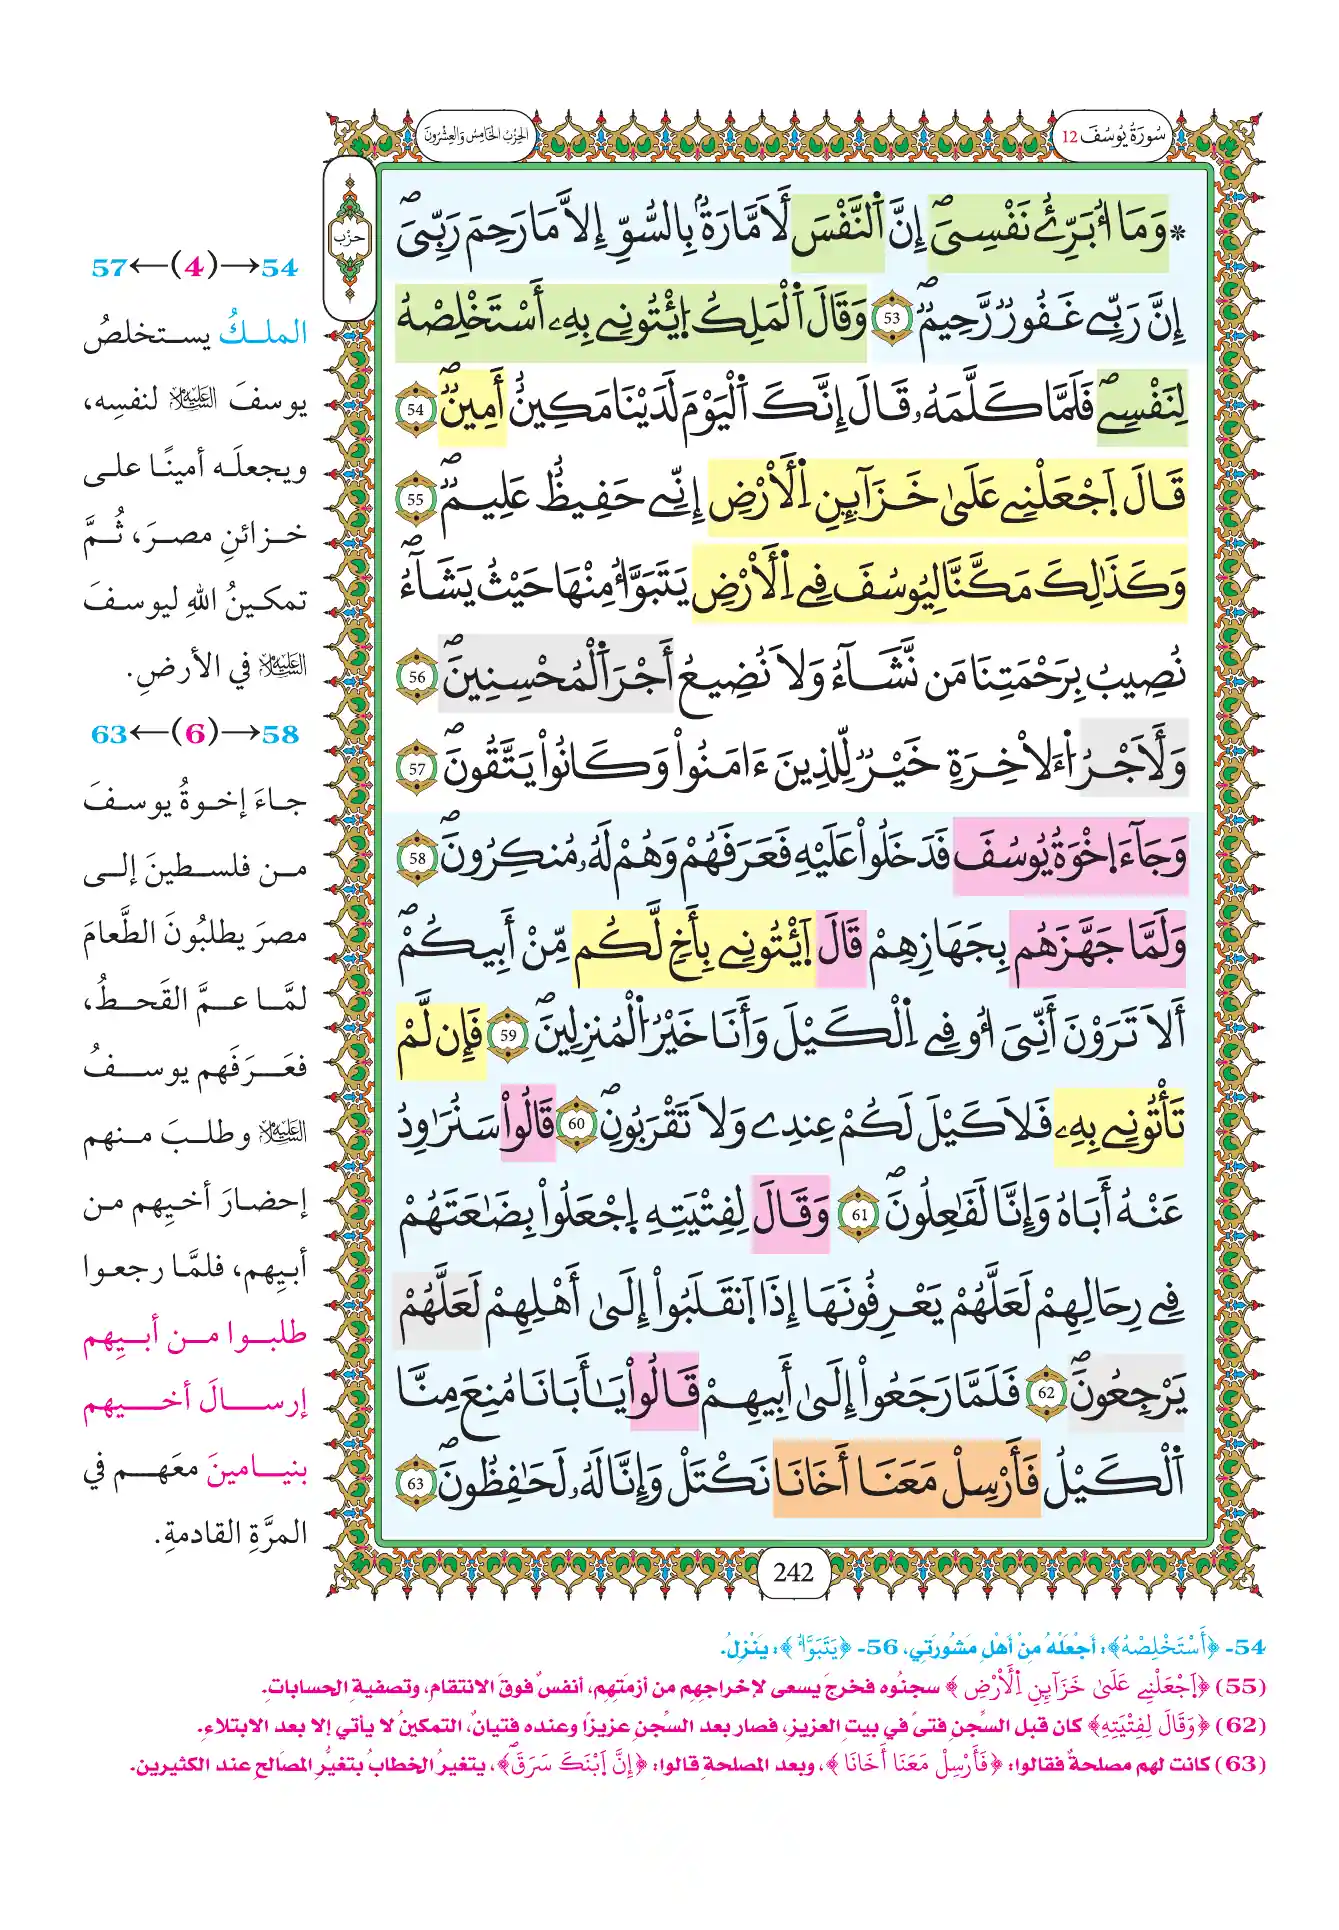 سُورَةُ يُوسُفَ 12
الحِزْبُ الخَامِسُ وَالعِشْرُونَ
حزب
* وَمَآ أُبَرِّئُ نَفْسِيَۖ إِنَّ اَ۬لنَّفْسَ لَأَمَّارَةُۢ بِالسُّوٓءِ اِلَّا مَا رَحِمَ رَبِّيَۖ
إِنَّ رَبِّے غَفُورٞ رَّحِيمٞۖ 53 وَقَالَ اَ۬لْمَلِكُ اُ۪يتُونِے بِهِۦٓ أَسْتَخْلِصْهُ
لِنَفْسِےۖ فَلَمَّا كَلَّمَهُۥ قَالَ إِنَّكَ اَ۬لْيَوْمَ لَدَيْنَا مَكِينٌ أَمِينٞۖ 54
قَالَ اَ۪جْعَلْنِے عَلَىٰ خَزَآئِنِ اِ۬لْأَرْضِ إِنِّے حَفِيظٌ عَلِيمٞۖ 55
وَكَذَٰلِكَ مَكَّنَّا لِيُوسُفَ فِے اِ۬لْأَرْضِ يَتَبَوَّأُ مِنْهَا حَيْثُ يَشَآءُۖ
نُصِيبُ بِرَحْمَتِنَا مَن نَّشَآءُ وَلَا نُضِيعُ أَجْرَ اَ۬لْمُحْسِنِينَۖ 56
وَلَأَجْرُ اُ۬لَاخِرَةِ خَيْرٞ لِّلذِينَ ءَامَنُواْ وَكَانُواْ يَتَّقُونَۖ 57
وَجَآءَ اِ۪خْوَةُ يُوسُفَ فَدَخَلُواْ عَلَيْهِ فَعَرَفَهُمْ وَهُمْ لَهُۥ مُنكِرُونَۖ 58
وَلَمَّا جَهَّزَهُم بِجَهَازِهِمْ قَالَ اَ۪يتُونِے بِأَخٖ لَّكُم مِّنْ أَبِيكُمْۖ
أَلَا تَرَوْنَ أَنِّيَ أُوفِے اِ۬لْكَيْلَ وَأَنَا خَيْرُ اُ۬لْمُنزِلِينَۖ 59 فَإِن لَّمْ
تَأْتُونِے بِهِۦ فَلَا كَيْلَ لَكُمْ عِندِے وَلَا تَقْرَبُونِۖ 60 قَالُواْ سَنُرَٰوِدُ
عَنْهُ أَبَاهُ وَإِنَّا لَفَٰعِلُونَۖ 61 وَقَالَ لِفِتْيَتِهِ اِ۪جْعَلُواْ بِضَٰعَتَهُمْ
فِے رِحَالِهِمْ لَعَلَّهُمْ يَعْرِفُونَهَا إِذَا اَ۪نقَلَبُواْ إِلَىٰٓ أَهْلِهِمْ لَعَلَّهُمْ
يَرْجِعُونَۖ 62 فَلَمَّا رَجَعُواْ إِلَىٰٓ أَبِيهِمْ قَالُواْ يَٰأَبَانَا مُنِعَ مِنَّا
اَ۬لْكَيْلُ فَأَرْسِلْ مَعَنَا أَخَانَا نَكْتَلْ وَإِنَّا لَهُۥ لَحَٰفِظُونَۖ 63
242
54→(4)←57
الملكُ يستخلصُ
يوسفَ عليه السلام لنفسِه،
ويجعلَه أمينًا على
خزائنِ مصرَ، ثُمَّ
تمكينُ اللهِ ليوسفَ
عليه السلام في الأرضِ.
58→(6)←63
جاءَ إخوةُ يوسفَ
من فلسطينَ إلى
مصرَ يطلبُونَ الطَّعامَ
لمَّا عمَّ القَحطُ،
فعَرَفَهم يوسفُ
عليه السلام وطلبَ منهم
إحضارَ أخيِهم من
أبيِهم، فلمَّا رجعوا
طلبوا من أبيِهم
إرسالَ أخيهم
بنيامينَ معَهم في
المرَّةِ القادمةِ.
54- ﴿أَسْتَخْلِصْهُ﴾: أجْعَلْهُ مِنْ أهْلِ مَشُورَتي، 56- ﴿يَتَبَوَّأُ﴾: يَنْزِلُ.
(55) ﴿اَ۪جْعَلْنِے عَلَىٰ خَزَآئِنِ اِ۬لْأَرْضِ﴾ سجنُوه فخرجَ يسعى لإخراجهِم من أزمتِهم، أنفسٌ فوقَ الانتقام، وتصفيةِ الحسابات.
(62) ﴿وَقَالَ لِفِتْيَتِهِ﴾ كان قبل السِّجن فتىً في بيتِ العزيزِ، فصار بعد السِّجنِ عزيزًا وعنده فتيانٌ، التمكينُ لا يأتي إلا بعد الابتلاءِ.
(63) كانت لهم مصلحةٌ فقالوا: ﴿فَأَرْسِلْ مَعَنَا أَخَانَا﴾، وبعد المصلحةِ قالوا: ﴿إِنَّ اَ۪بْنَكَ سَرَقَۖ﴾، يتغيرُ الخطابُ بتغيُّرِ المصَالحِ عند الكثيرين.